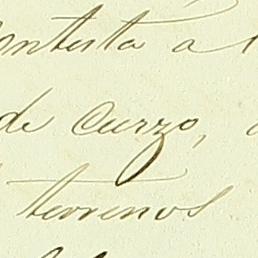 contesta á
de curzo,
terrenos